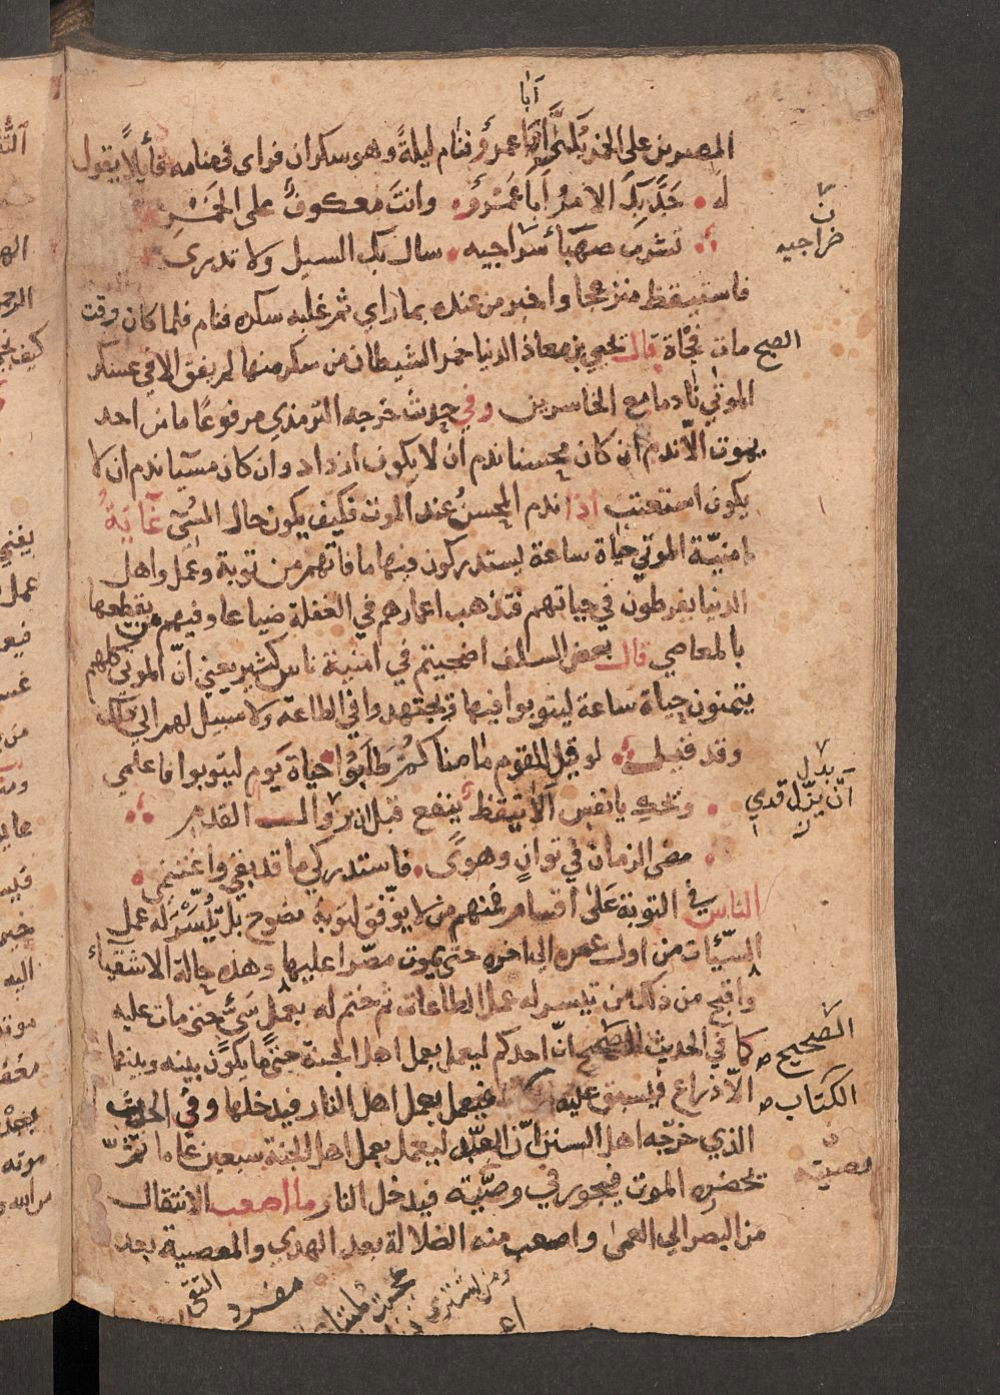 أبا
المصرين على الخمر يكنّى أبا عمرو فنام ليلةً وهو سكران فراى في منامه قايلاً يقول
له جَدَّ بِكَ الامرُ أبا عَمْرو وانتَ معكوفٌ على الخَمْرِ
تشرب صهبا سراجيه سال بك السيل ولا تدرى
ن
ضراجيه
فاستيقظ منزعجا واخبر من عنده بما راي ثم غلبه سكره فنام فلما كان وقت
الصبح مات فَجْأة قال يحيى بن معاذ الدنيا خمر الشيطان من سكر منها لم يفق الا في عسكر
الموتي نادما مع الخاسرين وفي حديث خرجه الترمذي مرفوعًا ما من احد
يموت الّا ندم ان كان محسنا ندم أن لا يكون ازداد وان كان مسيّا ندم ان لا
يكون استعتب اذا ندم المحسنُ عند الموت فكيف يكون حال المسّيُ غايةُ
امنيّة الموتي حياة ساعة يستدركون فيها ما فاتهم من توبة وعمل واهل
الدنيا يفرطون في حياتهم فتذهب اعمارهم في الغفلة ضياعا وفيهم من يقطعها
بالمعاصي قال بعض السلف اصبحتم في امنية ناس كثير يعني انّ الموتي كلهم
يتمنون حياة ساعة ليتوبوا فيها ويجتهدوا في الطاعة ولا سبيل لهم الي ذلك
وقد قيل لو قيل للقوم ما مناكمُ طَلَبُوا حياة يَوم ليتوبوا فاعلمي
ويحكِ يا نفس ألا تيقظ ينفع قبل ان تزوال القدم
بدل
أنْ تزّل قدمي
ن
مضى الزمان في توانٍ وهوًى فاستدركي ما قد بقي واغتنمي
الناس في التوبة عَلى أقسام فمنهم من لا يوّفق لتوبة نصوح بل تُيُسّرَ له عمل
السّيّئات من اول عمره الى اخره حتى يموت مصّرا عليها وهذه حالة الاشقيآء
واقبح من ذلك من تيسر له عمل الطاعات ثم ختم له بعمل سَيّئ حتى مات عليه
كما في الحديث الصحيح انّ احدكم ليعمل بعمل اهل الجنة حتى ما يكون بينه وبينها
الصّحيح
الّا ذراع فيسبق عليه فيعمل بعمل اهل النار فيدخلها وفي الحديث
الكتاب
الذي خرّجه اهل السنن انّ العبد ليعمل بعمل اهل الجنة سبعين عاما ثمّ
يحضره الموت فيجور في وصّيته فيدخل النار ما اصعب الانتقال
من البصر الي العمى واصعب منه الضلالة بعد الهدي والمعصية بعد
التقى